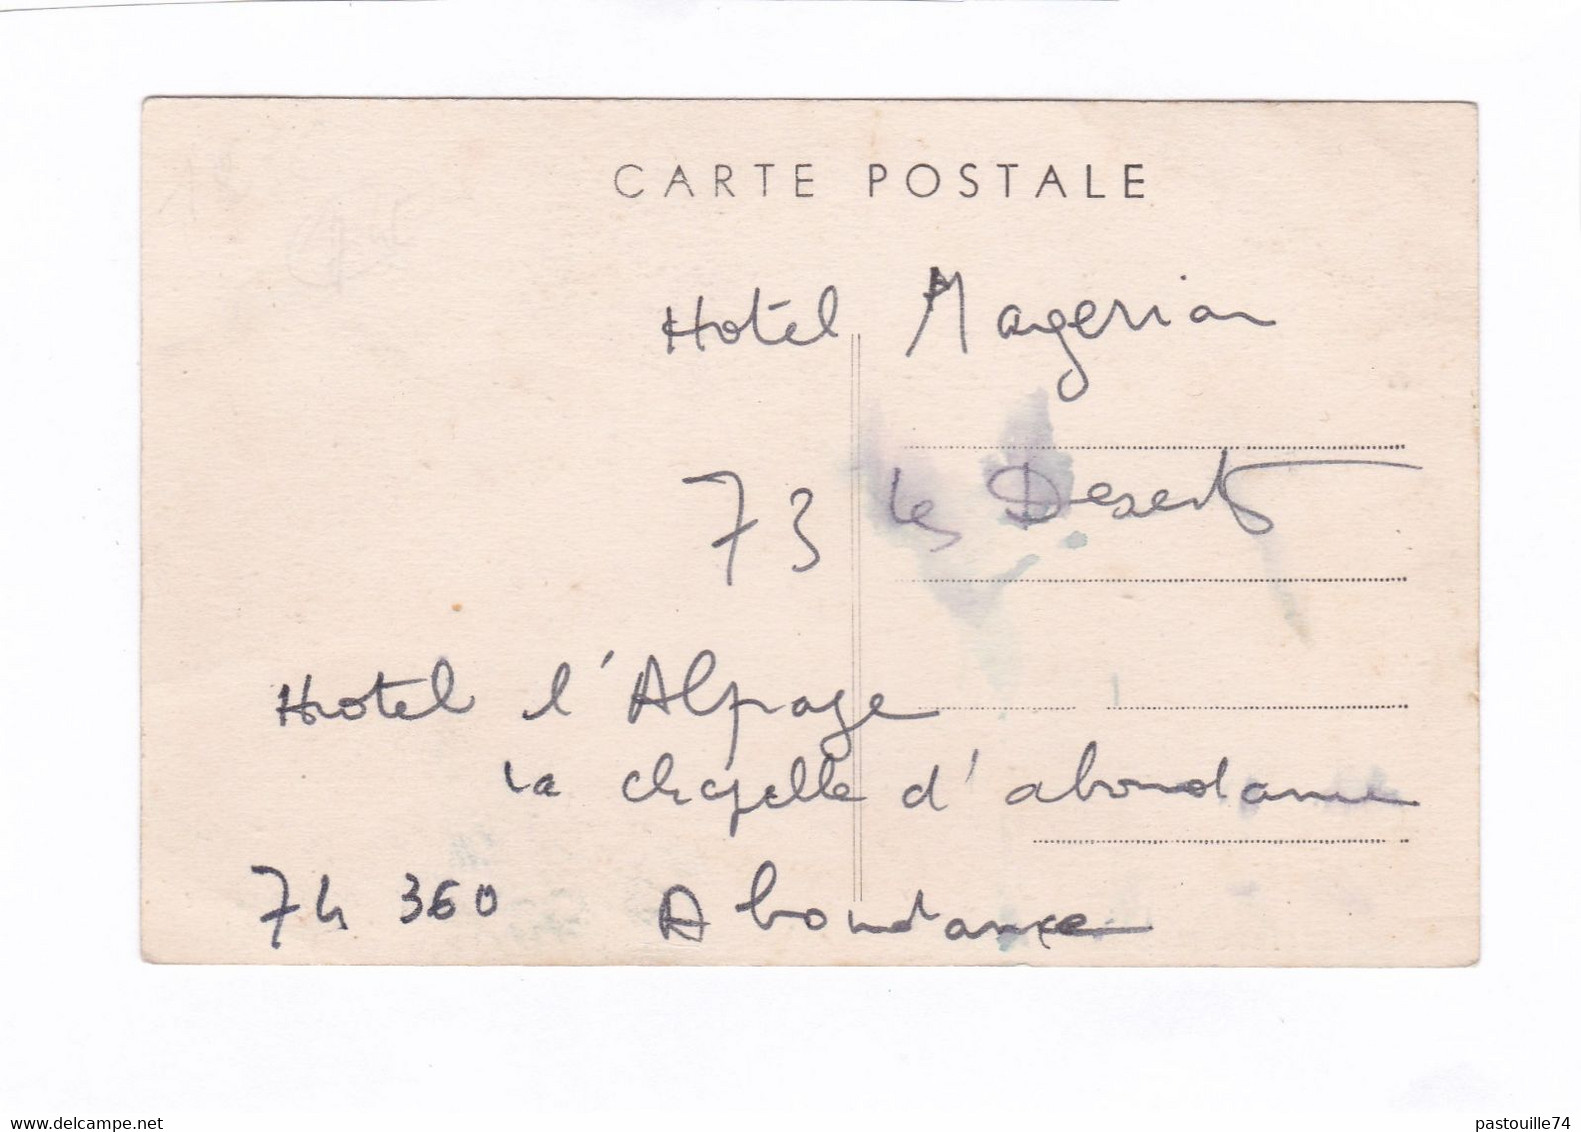 CARTE POSTALE
Hotel Magerian
73 les Desert
Hotel l'Alpage
la chapelle d'abondance
74 360 Abondance
www.delcampe.net
pastouille74